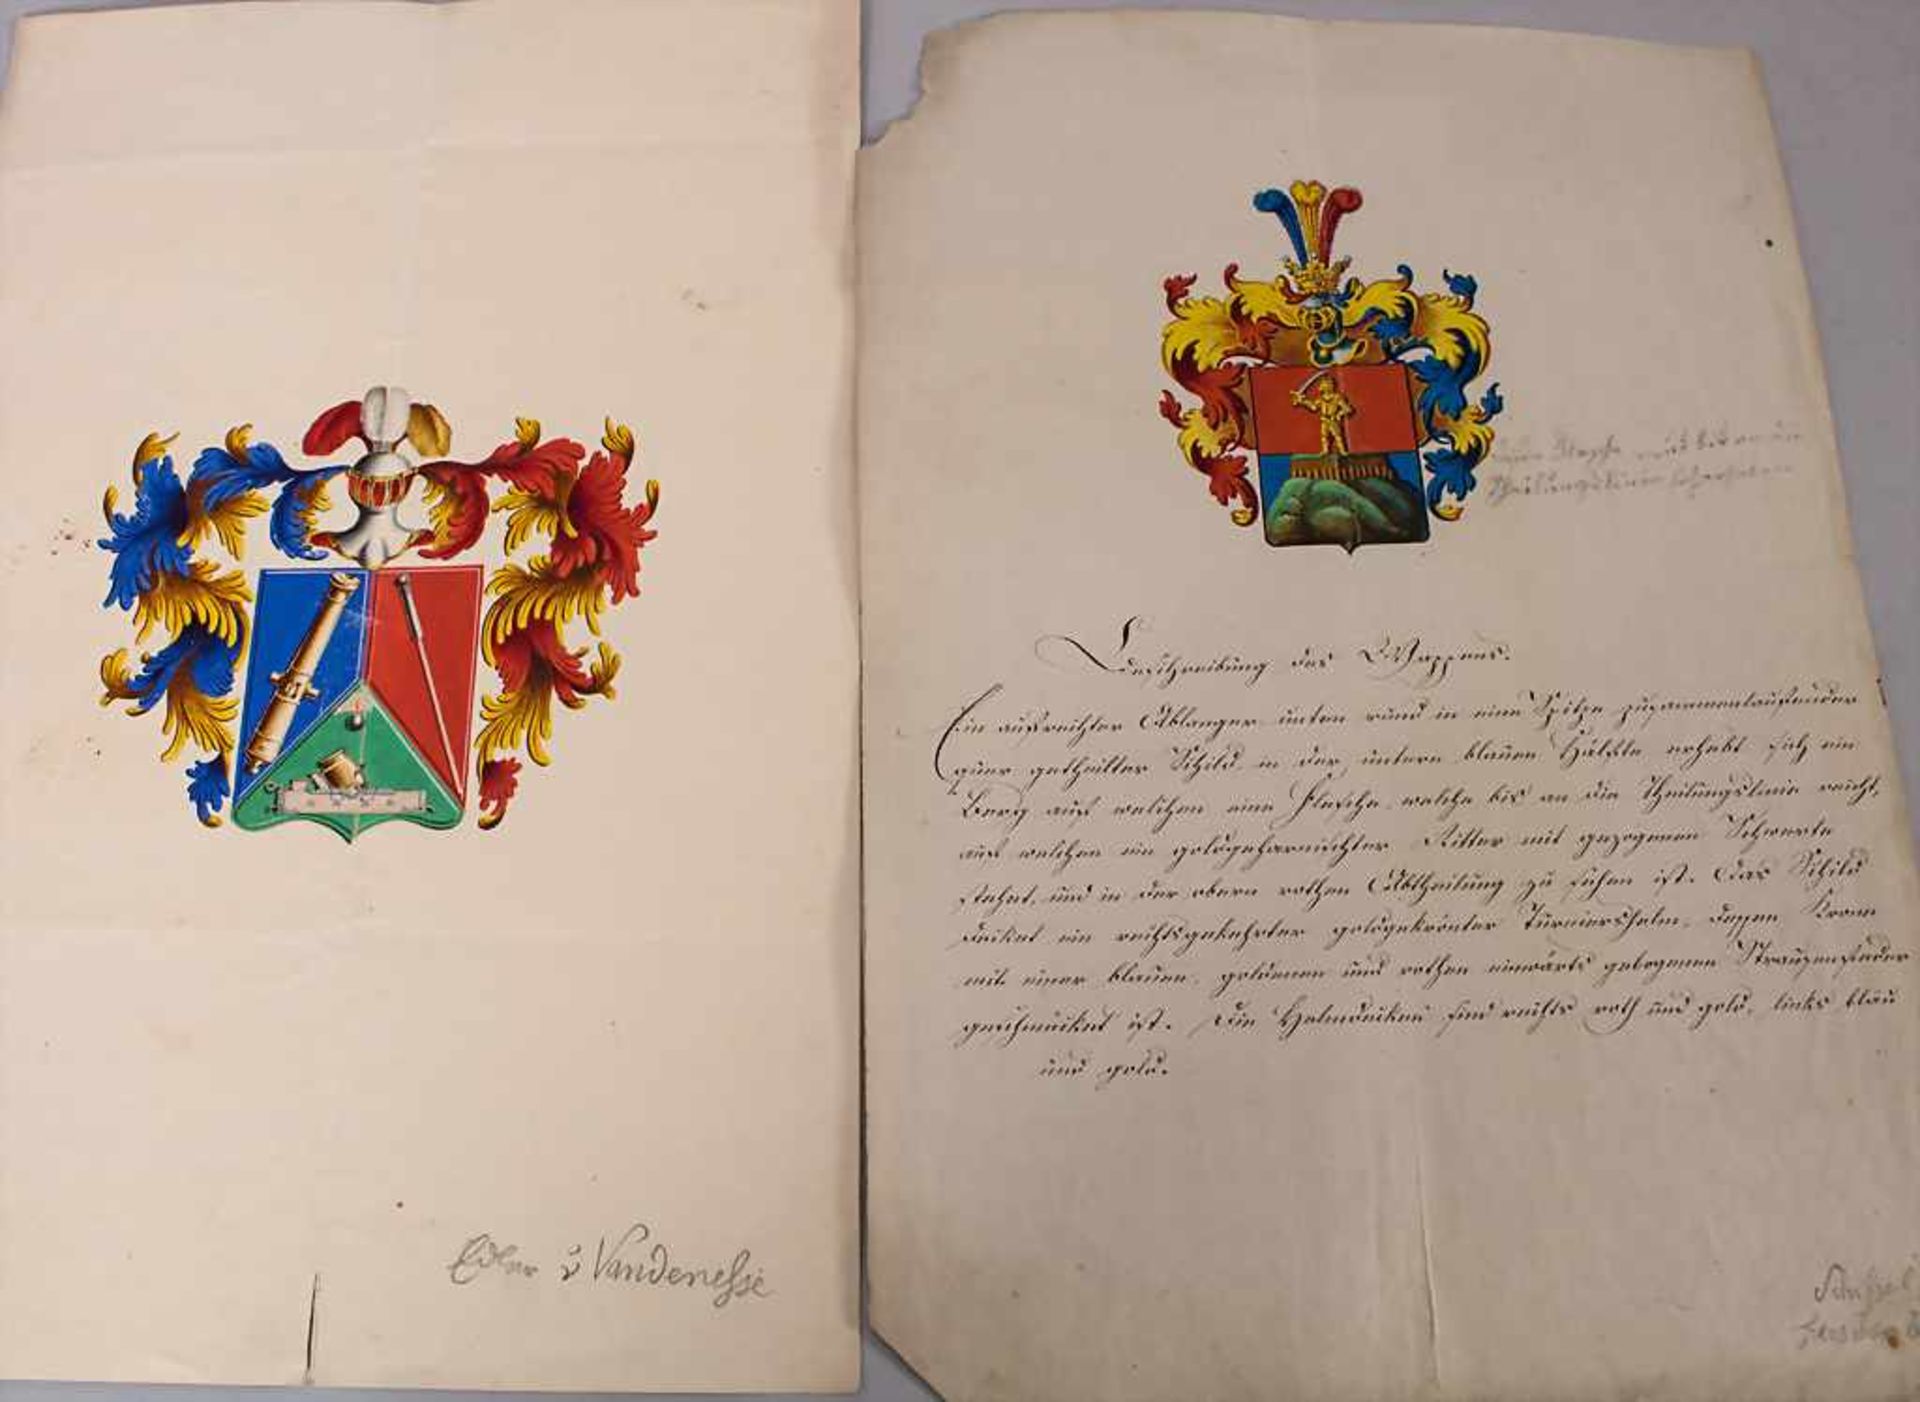 Edler v Vandenesse
Beschreibung des Wappens.
Ein aufrechter Ablanger unten rund in eine Spitze zusammenlaufender
quer getheilter Schild, in der untern blauen Hälfte erhebt sich ein
Berg auf welchen eine Flesche, welche bis an die Theilungslinie reicht,
auf welchen ein goldgeharnischter Ritter mit gezogenen Schwerte
stehet, und in der obern rothen Abtheilung zu sehen ist. Das Schild
decket ein rechtsgekehrter goldgekrönter Turniershelm, dessen Krone
mit einer blauen, goldenen und rothen einwärts gebogenen Straußenfeder
geschmücket ist. Die Helmdecken sind rechts roth und gold, links blau
und gold.